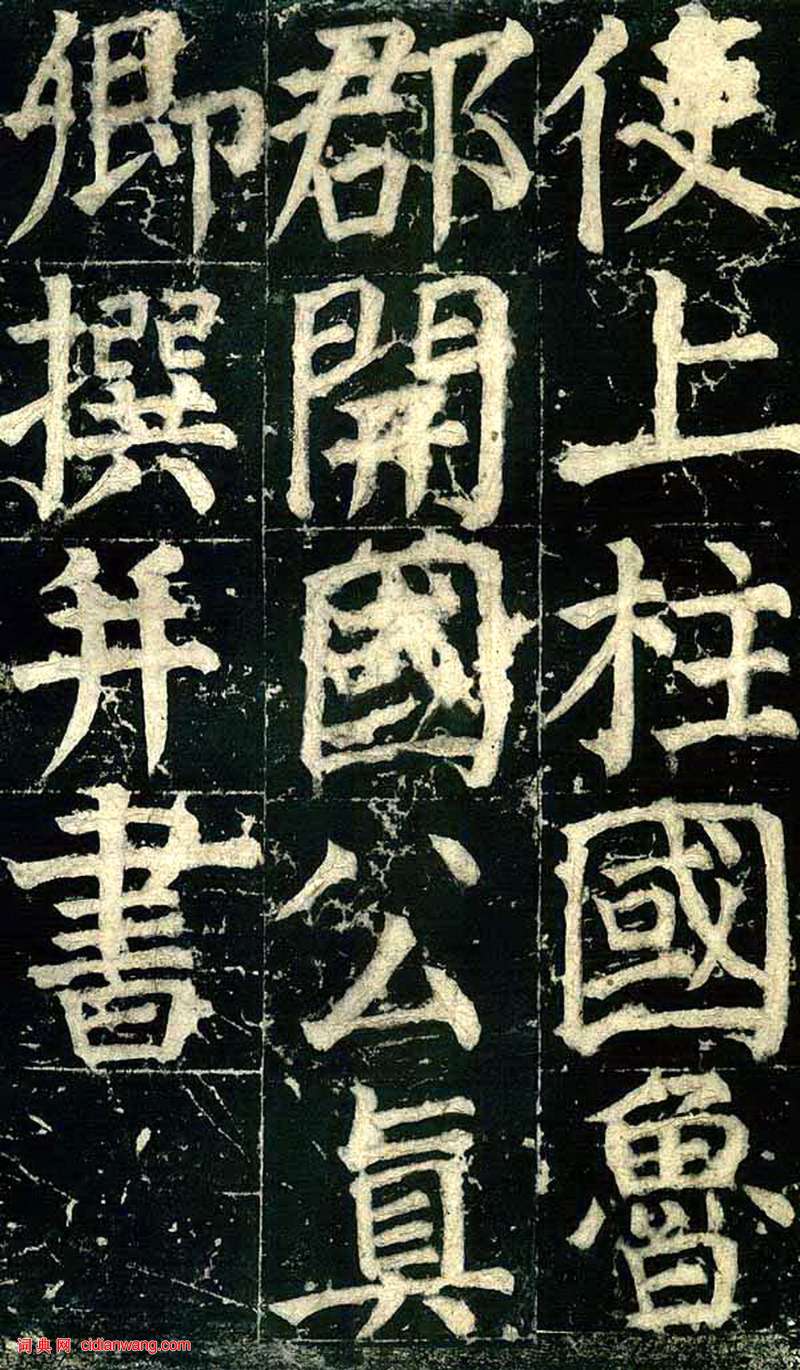 使上柱國魯
郡開國公真
卿撰并書
词典网 cidianwang.com